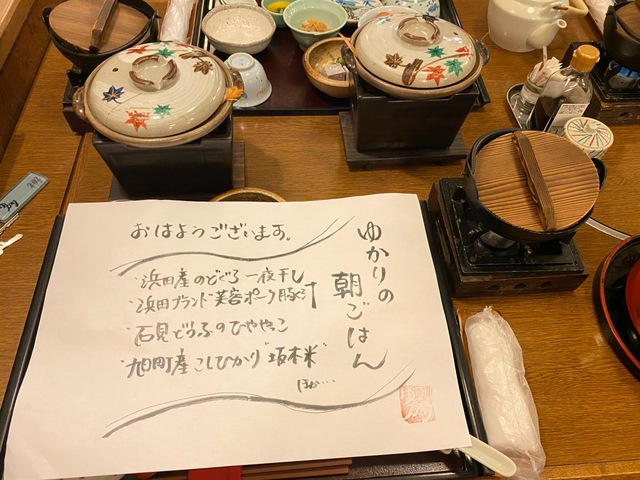 ゆかりの
朝ごはん
おはようございます。
・浜田産のどぐろ一夜干し
・浜田ブランド"美容ポーク豚汁
・石見どうふのひややっこ
・旭町産こしひかり"坂本米"
ほか…